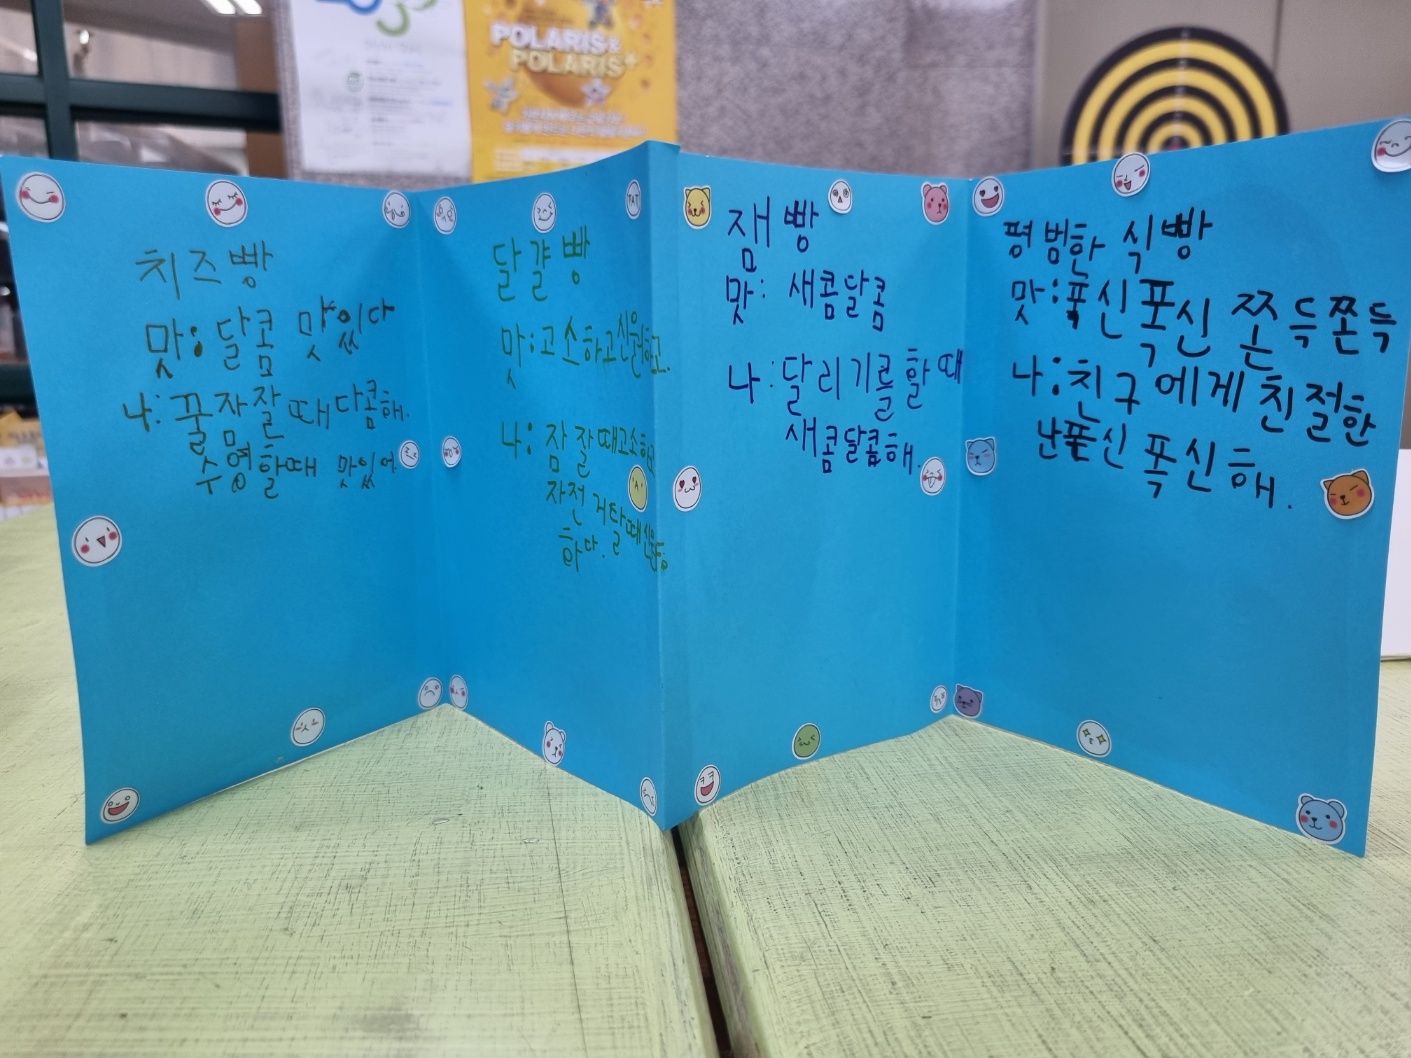 POLARIS
POLARIS+
치즈빵
맛: 달콤 맛있다
나: 꿀잠잘 때 다콤해.
수영할때 맛있어.
달걀빵
맛: 고소하고 시원하고.
나: 잠잘때 고소하고
자전거탈때 시원
하다.
잼빵
맛: 새콤달콤
나: 달리기를 할 때
새콤달콤해.
평범한 식빵
맛: 폭신폭신 쫀득쫀득
나: 친구에게 친절한
난 폭신폭신해.